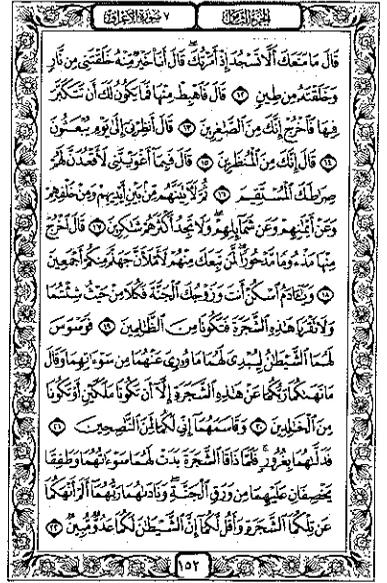 ٧ سورة الأعراف الجزء الثامن
قَالَ مَا مَنَعَكَ أَلَّا تَسْجُدَ إِذْ أَمَرْتُكَ ۖ قَالَ أَنَا۠ خَيْرٌ مِّنْهُ خَلَقْتَنِى مِن نَّارٍ
وَخَلَقْتَهُۥ مِن طِينٍ ١٢ قَالَ فَٱهْبِطْ مِنْهَا فَمَا يَكُونُ لَكَ أَن تَتَكَبَّرَ
فِيهَا فَٱخْرُجْ إِنَّكَ مِنَ ٱلصَّٰغِرِينَ ١٣ قَالَ أَنظِرْنِىٓ إِلَىٰ يَوْمِ يُبْعَثُونَ
١٤ قَالَ إِنَّكَ مِنَ ٱلْمُنظَرِينَ ١٥ قَالَ فَبِمَآ أَغْوَيْتَنِى لَأَقْعُدَنَّ لَهُمْ
صِرَٰطَكَ ٱلْمُسْتَقِيمَ ١٦ ثُمَّ لَءَاتِيَنَّهُم مِّنۢ بَيْنِ أَيْدِيهِمْ وَمِنْ خَلْفِهِمْ
وَعَنْ أَيْمَٰنِهِمْ وَعَن شَمَآئِلِهِمْ ۖ وَلَا تَجِدُ أَكْثَرَهُمْ شَٰكِرِينَ ١٧ قَالَ ٱخْرُجْ
مِنْهَا مَذْءُومًا مَّدْحُورًا ۖ لَّمَن تَبِعَكَ مِنْهُمْ لَأَمْلَأَنَّ جَهَنَّمَ مِنكُمْ أَجْمَعِينَ
١٨ وَيَٰٓـَٔادَمُ ٱسْكُنْ أَنتَ وَزَوْجُكَ ٱلْجَنَّةَ فَكُلَا مِنْ حَيْثُ شِئْتُمَا
وَلَا تَقْرَبَا هَٰذِهِ ٱلشَّجَرَةَ فَتَكُونَا مِنَ ٱلظَّٰلِمِينَ ١٩ فَوَسْوَسَ
لَهُمَا ٱلشَّيْطَٰنُ لِيُبْدِىَ لَهُمَا مَا وُۥرِىَ عَنْهُمَا مِن سَوْءَٰتِهِمَا وَقَالَ
مَا نَهَىٰكُمَا رَبُّكُمَا عَنْ هَٰذِهِ ٱلشَّجَرَةِ إِلَّآ أَن تَكُونَا مَلَكَيْنِ أَوْ تَكُونَا
مِنَ ٱلْخَٰلِدِينَ ٢٠ وَقَاسَمَهُمَآ إِنِّى لَكُمَا لَمِنَ ٱلنَّٰصِحِينَ ٢١
فَدَلَّىٰهُمَا بِغُرُورٍ ۚ فَلَمَّا ذَاقَا ٱلشَّجَرَةَ بَدَتْ لَهُمَا سَوْءَٰتُهُمَا وَطَفِقَا
يَخْصِفَانِ عَلَيْهِمَا مِن وَرَقِ ٱلْجَنَّةِ ۖ وَنَادَىٰهُمَا رَبُّهُمَآ أَلَمْ أَنْهَكُمَا
عَن تِلْكُمَا ٱلشَّجَرَةِ وَأَقُل لَّكُمَآ إِنَّ ٱلشَّيْطَٰنَ لَكُمَا عَدُوٌّ مُّبِينٌ ٢٢
١٥٢